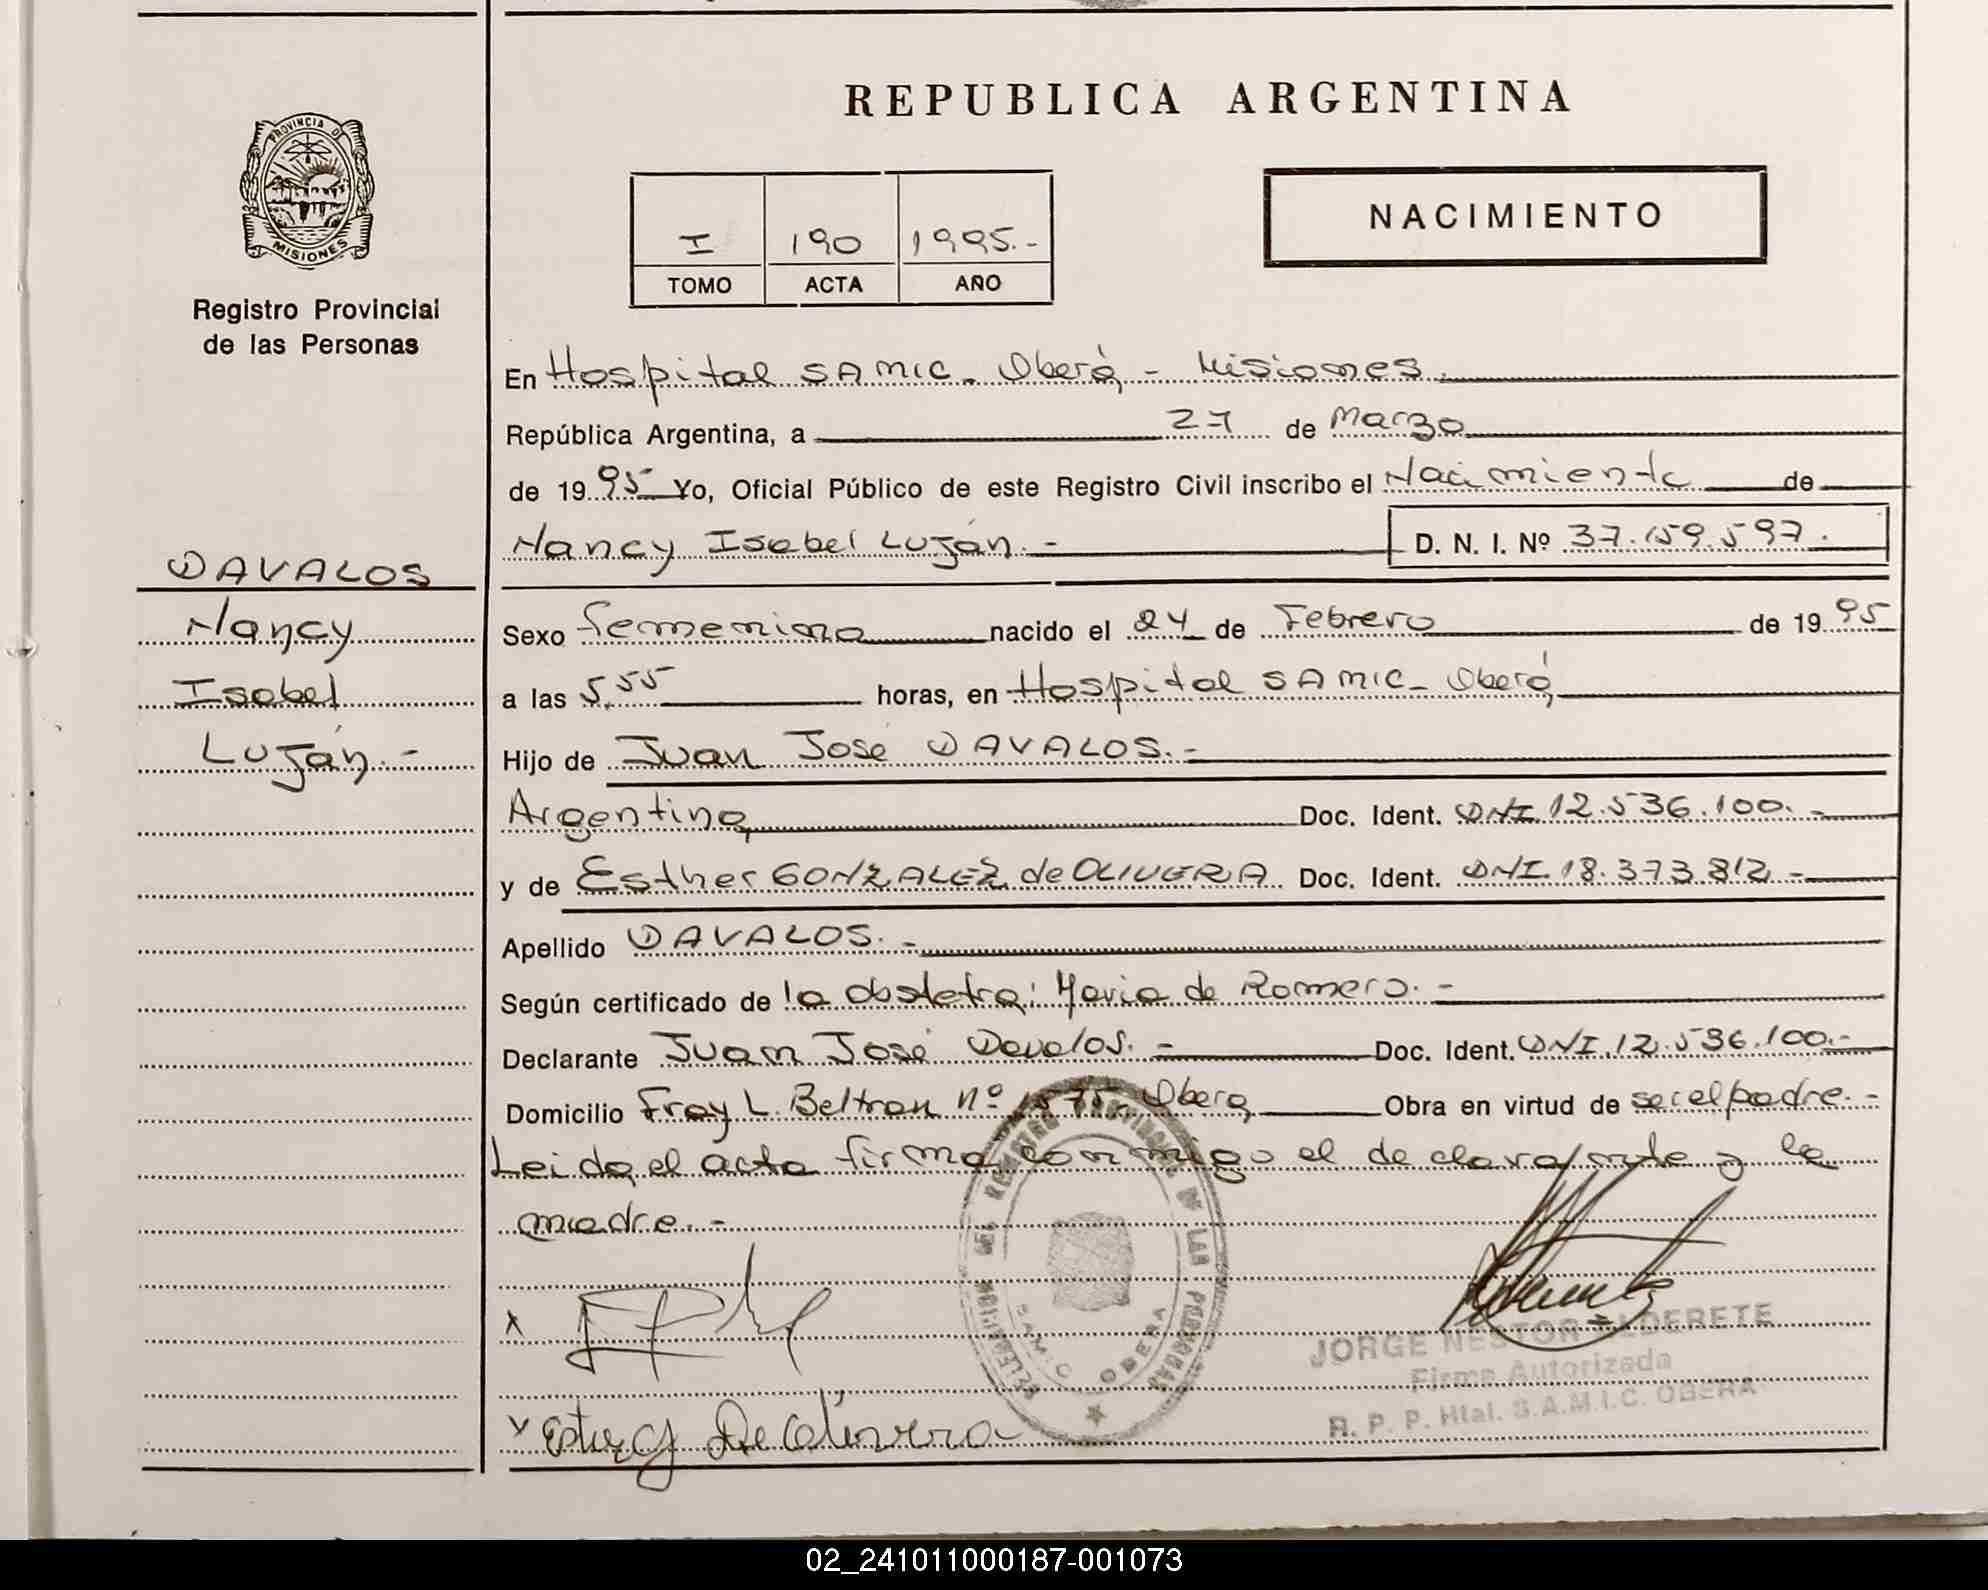 REPUBLICA ARGENTINA
PROVINCIA D
MISIONES
Registro Provincial
de las Personas
I 190 1995.-
TOMO ACTA AÑO
NACIMIENTO
En Hospital SAMIC - Oberá - Misiones.
República Argentina, a 27 de Marzo
de 1995 Yo, Oficial Público de este Registro Civil inscribo el Nacimiento de
Nancy Isabel Luján.- D. N. I. Nº 37.159.597.
DAVALOS
Nancy
Isabel
Luján.-
Sexo femenino nacido el 24 de Febrero de 1995
a las 5,55 horas, en Hospital SAMIC - Oberá
Hijo de Juan José DAVALOS.-
Argentino Doc. Ident. DNI 12.536.100.-
y de Esther GONZALEZ de OLIVERA Doc. Ident. DNI. 18.373.812.-
Apellido DAVALOS.-
Según certificado de la obstetra: María de Romero.-
Declarante Juan José Davalos.- Doc. Ident. DNI. 12.536.100.-
Domicilio Fray L. Beltran nº 1575 Oberá Obra en virtud de ser el padre.-
Leida el acta firma conmigo el declarante y la
madre.-
DELEGACION DEL REGISTRO PROVINCIAL DE LAS PERSONAS
SAMIC OBERA
x
JORGE NESTOR ALDERETE
Firma Autorizada
R. P. P. Htal. S.A.M.I.C. OBERA
x Esther G De Olivera
02_241011000187-001073